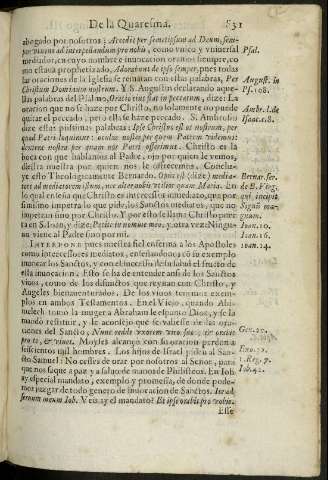 De la Quaresma. 831
abogado por nosotros: Accedit per semetipsum ad Deum, sem-
per vivens ad interpellandum pro nobis, como vnico y vniversal Psal.
mediador, en cuyo nombre e inuocacion oramos siempre, co
mo estava prophetizado, Adorabunt de ipso semper, pues todas
las oraciones de la Iglesia se rematan con estas palabras, Per August. in
Christum Dominum nostrum. Y S. Augustin declarando aque- Ps. 108.
llas palabras del Psalmo, Oratio eius fiat in peccatum, dize: La
oracion que no se haze por Christo, no solamente no puede Amb. l. de
quitar el peccado, pero ella se haze peccado. S. Ambrosio Isaac. c. 8.
dize estas pulissimas palabras: Ipse Christus est os nostrum, per
quod Patri loquimur: oculus noster per quem Patrem videmus:
dextera nostra per quam nos Patri offerimus. Christo es la
boca con que hablamos al Padre, ojo por quien le vemos,
diestra nuestra por quien nos le offrecemos. Concluya-
ye esto Theologicamente Bernardo. Opus est (dize) media- Bernar. ser.
tore ad mediatorem istum, nec alter nobis vtilior quam Maria. En de B. Virg.
lo qual enseña que Christo es intercessor immediato, que por qui incipit
si mismo impetra lo que pide, los Sanctos mediatos, que no Signum ma-
impetran sino por Christo. Y por esto se llama Christo puer gnum.
ta en S. Ioan, y dize: Petite in nomine meo. y otra vez: Ningu- Ioan. 10.
no viene al Padre sino por mi. Ioan. 16.
INTERPONE pues nuestra fiel enferma a los Apostoles Ioan. 14.
como intercessores mediatos, enseñandonos cõ su exemplo
inuocar los Sanctos, y con el successo de su salud el fructo de
esta inuocacion. Esto se ha de entender ansi de los Sanctos
vivos, como de los difunctos que reynan con Christo, y
Angeles bienauenturados. De los vivos tenemos exem-
plos en ambos Testamentos. En el Viejo, quando Abi-
melech tomo la muger a Abraham le espanto Dios, y se la
mando restituir, y le aconsejo que se valiesse de las ora-
ciones del Sancto, Nunc redde vxorem viro suo, & orabit Gen. 20.
pro te, & viues. Moyses alcanço con su oracion perdon a
seiscientos mil hombres. Los hijos de Israel piden al San- Exo. 32.
cto Samuel: No ceses de orar por nosotros al Señor, para 1. Reg. 7.
que nos saque a paz y a saluo de manos de Philisteos. En Iob Iob. 42.
ay especial mandato, exemplo y promessa, de donde pode-
mos juzgar de todo genero de inuocacion de Sanctos. Ite ad
seruum meum Iob. Veis ay el mandato? Et ipse orabit pro vobis.
Esse